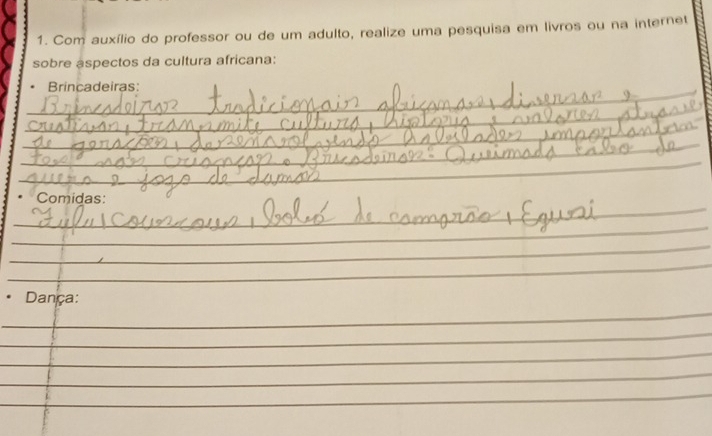 1. Com auxílio do professor ou de um adulto, realize uma pesquisa em livros ou na internet
sobre aspectos da cultura africana:
• Brincadeiras:
Brincadeiras tradicionais africanas, diversas e
criativas, transmite cultura, história e valores atraves
de geracões, desenvolvendo habilidades importantes
nas crianças. Brincadeiras: Queimada cabo de
guerra e jogo de damas
• Comidas:
Fufu, couscous, bolos de camarão, Egusi
• Dança: